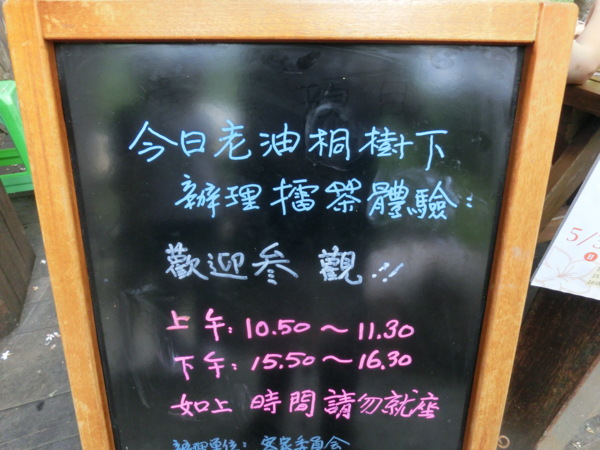 今日老油桐樹下
辦理擂茶體驗:
歡迎叅觀!!
上午:10.50～11.30
下午:15.50～16.30
如上 時間請勿就座
辦理單位:客家委員會
5/3